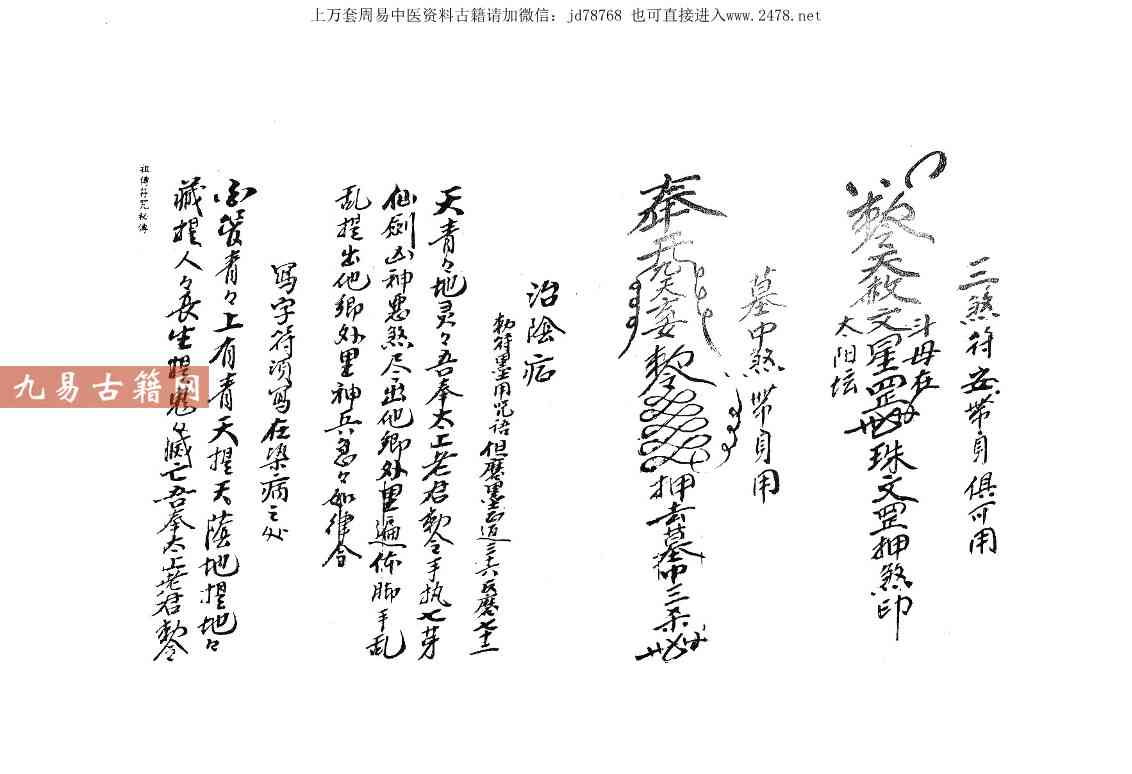 上万套周易中医资料古籍请加微信：jd78768 也可直接进入www.2478.net
三煞符安带身俱可用
敕令天赦文星罡煞珠文罡押煞印
斗母在
太阳坛
墓中煞带身用
奉九天玄敕令押去墓中三杀
治阴症
勅符墨用咒语但磨墨正道三六反磨七十二
天青々地灵々吾奉太上老君敕令手执七芽
仙剑凶神恶煞尽主他乡外里遍体脚手乱
乱提出他乡外里神兵急々如律令
写字符须写在染病之处
青々上有青天提天荫地提地々
藏提人々長生提鬼々滅亡吾奉太上老君敕令
祖传符咒秘传
九易古籍网